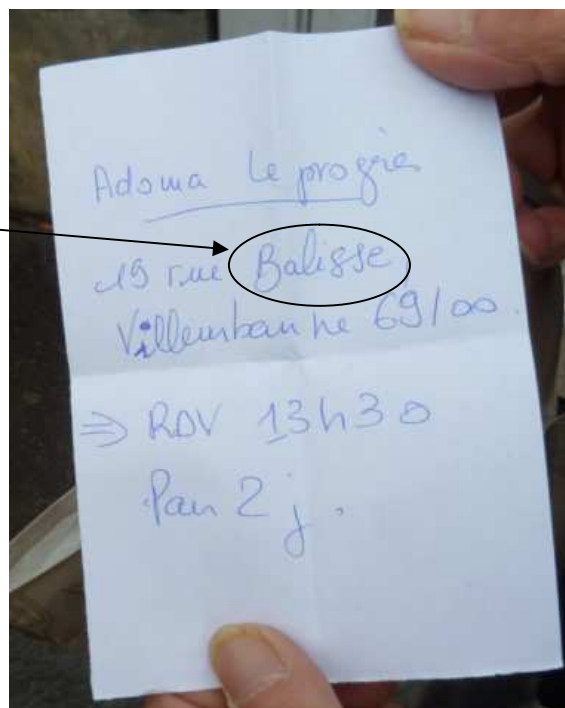 Adoma Le progrès
19 rue Balisse
Villeurbanne 69100.
⇒ RDV 13h30
Pour 2 j.